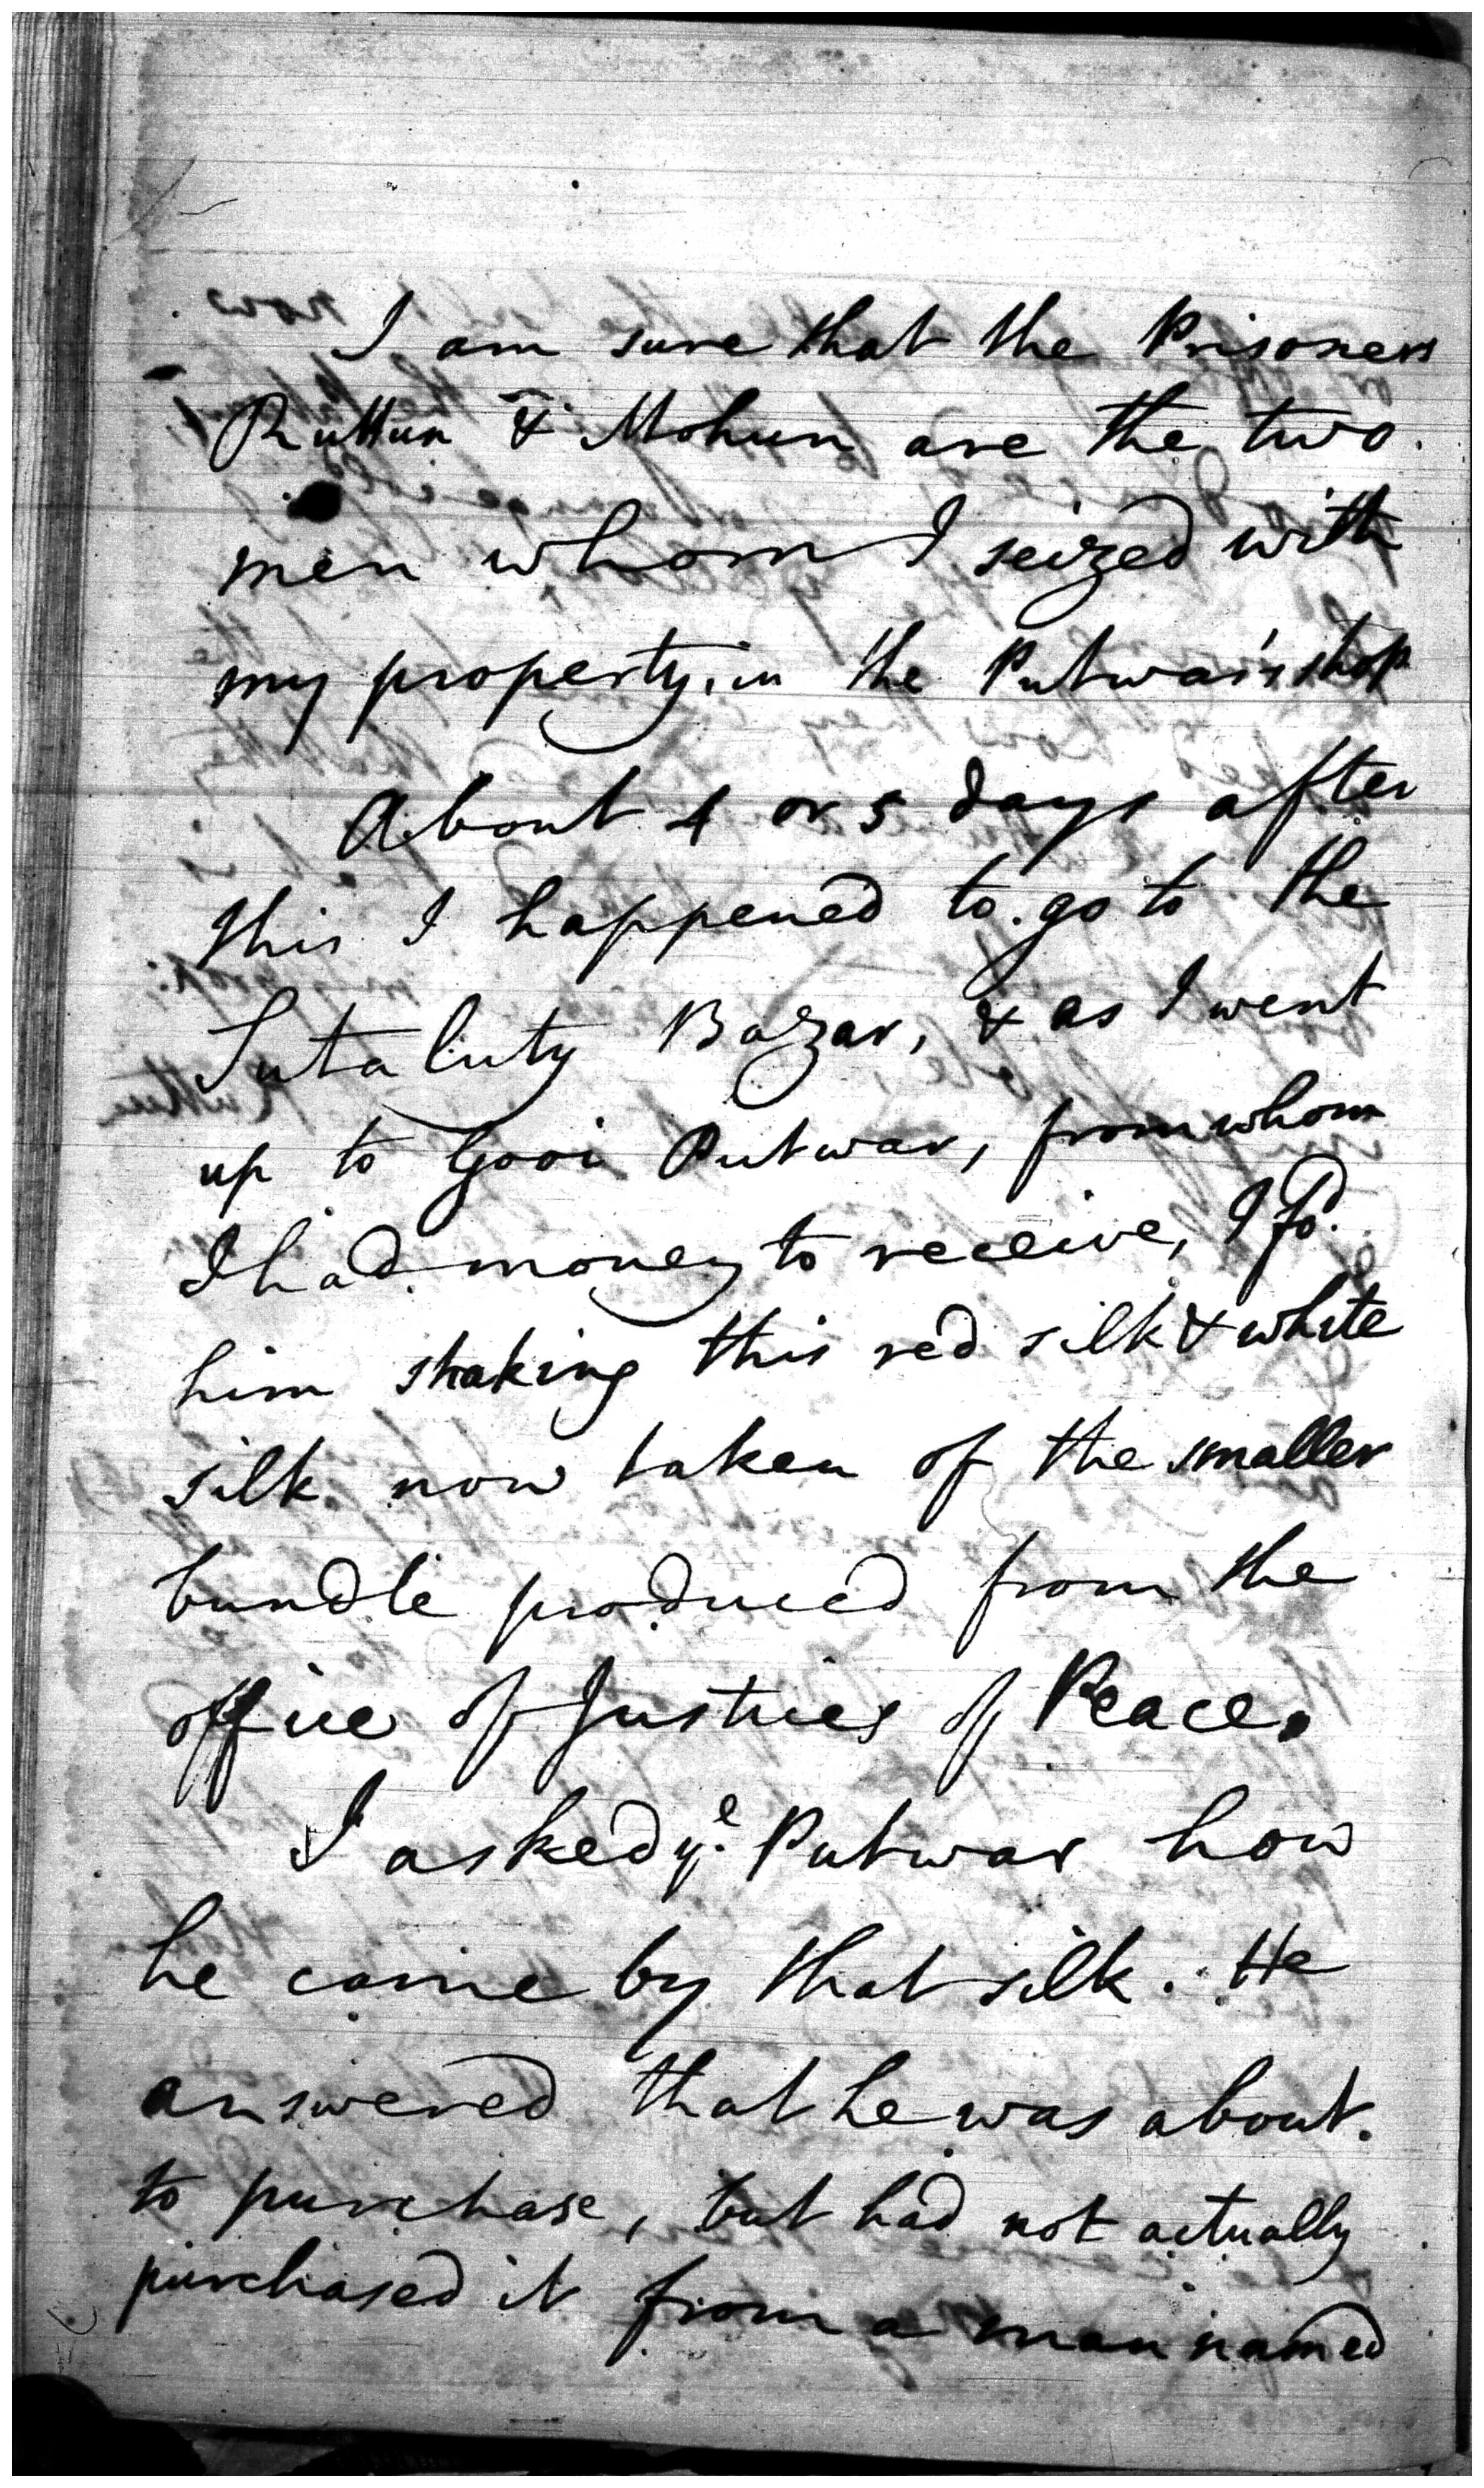 I am sure that the Prisoners
Ruttun & Mohun are the two
men whom I seized with
my property, in the Putwar's shop
About 4 or 5 days after
this I happened to go to the
Sutaluty Bazar, & as I went
up to Gooi Putwar, from whom
I had money to receive, I fo.d
him shaking this red silk & white
silk now taken of the smaller
bundle produced from the
office of Justices of Peace.
I asked y.e Putwar how
he came by that silk. He
answered that he was about
to purchase, but had not actually
purchased it from a man named